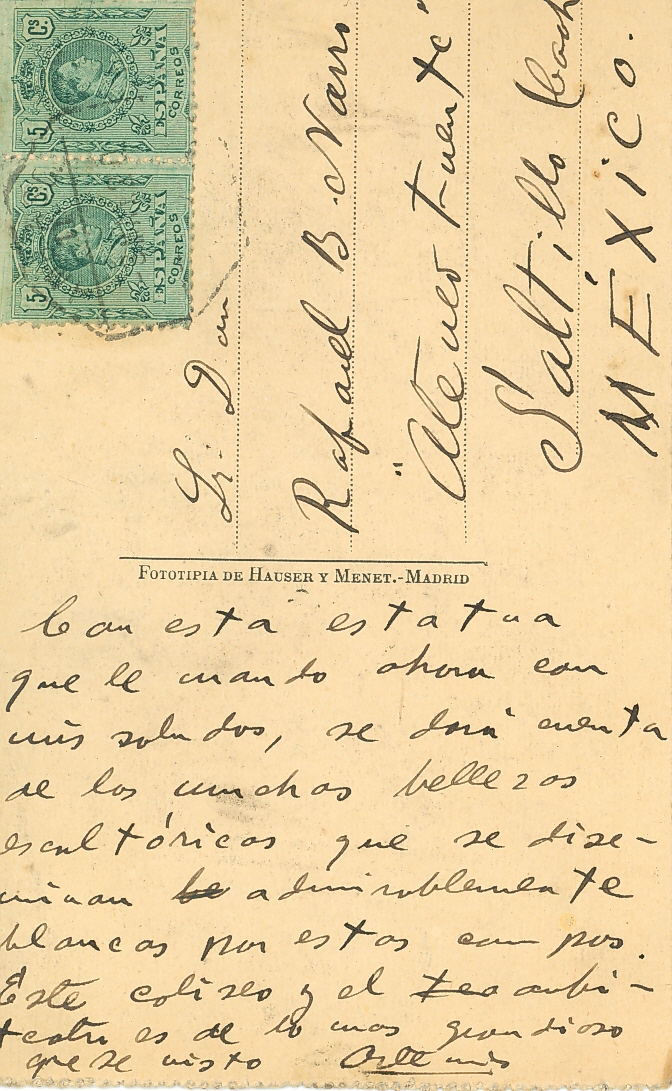 5 Cs
ESPAÑA
CORREOS
5 Cs
ESPAÑA
CORREOS
Sr. Don
Rafael B. Narro
"Ateneo Fuente"
Saltillo (Coah
MÉXICO.
FOTOTIPIA DE HAUSER Y MENET.-MADRID
Con esta estatua
que le mando ahora con
mis saludos, se dará cuenta
de las muchas bellezas
escultóricas que se dise-
minan admirablemente
blancas por estos campos.
Este coliseo y el anfi-
teatro es de lo mas grandioso
que se visto Artemis